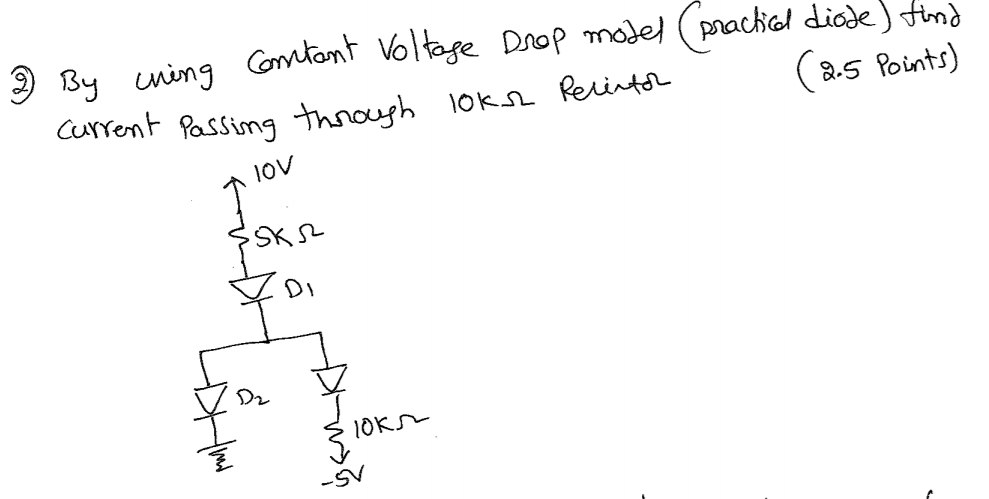 2) By using Constant Voltage Drop model (practical diode) find
current Passing through 10KΩ Resistor (2.5 Points)
10V
5KΩ
D1
D2
10KΩ
-5V